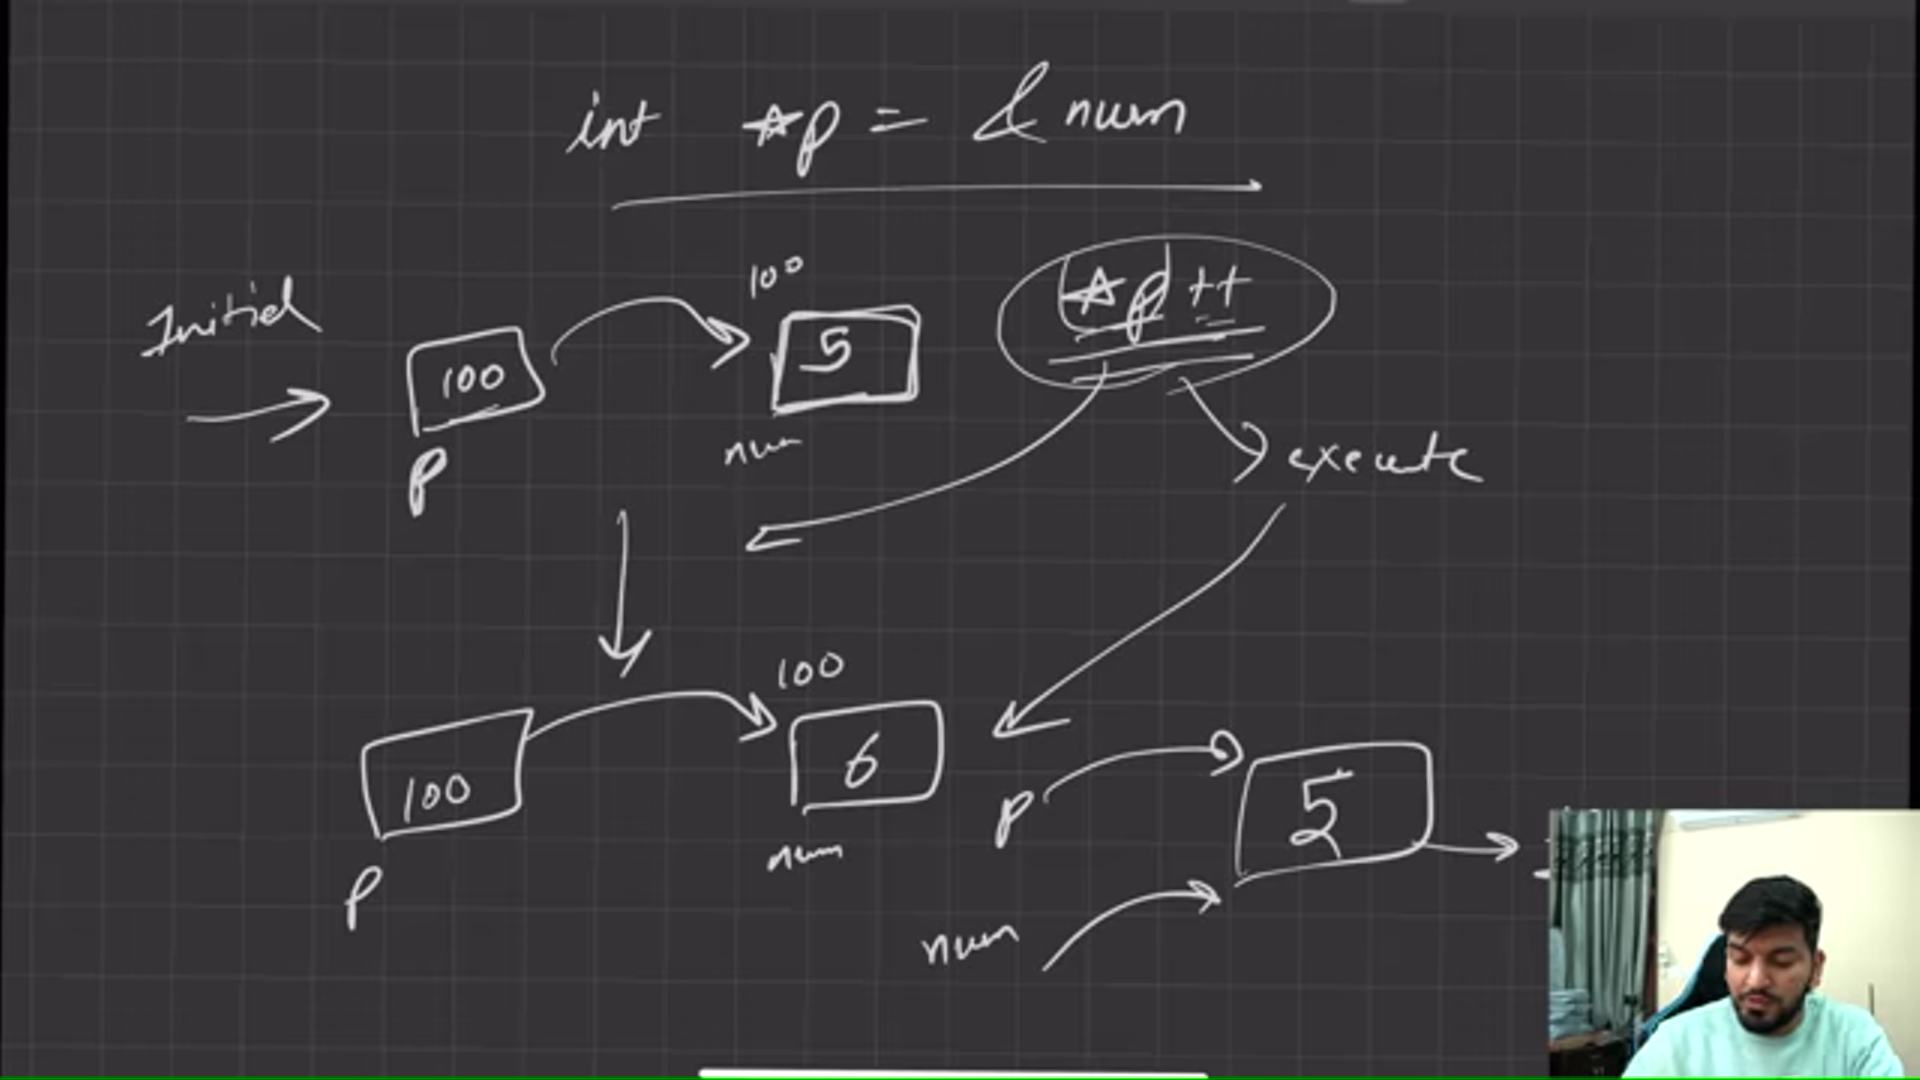 int *p = & num
100
Initial
*p ++
100
5
P
num
execute
100
100
6
P
num
P
5
num